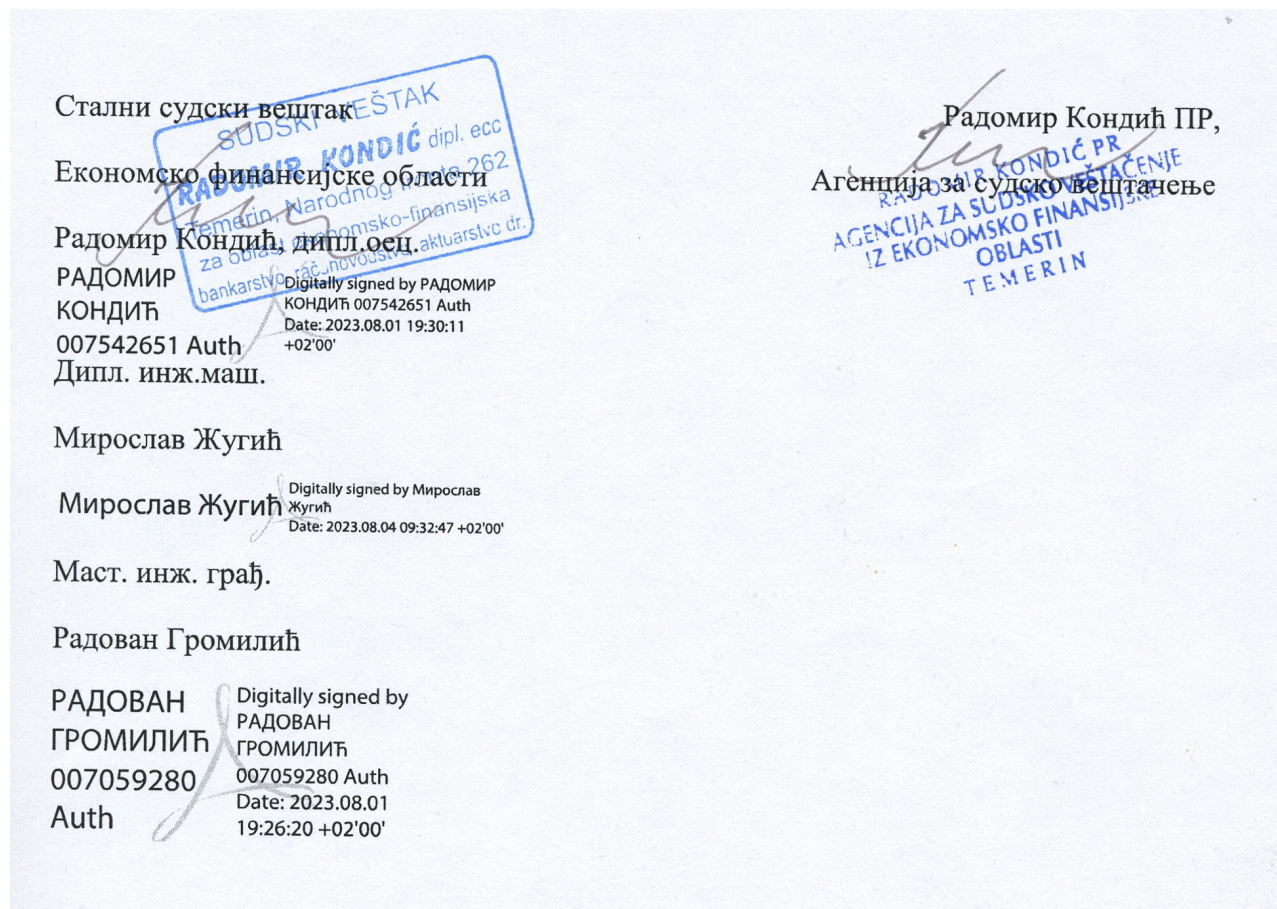 Стални судски вештак
Економско финансијске области
Радомир Кондић, дипл.оец.
SUDSKI VEŠTAK
RADOMIR KONDIĆ dipl. ecc
Temerin, Narodnog fronta 262
za oblast ekonomsko-finansijska
bankarstvo, računovodstvo, aktuarstvo dr.
РАДОМИР
КОНДИЋ
007542651 Auth
Digitally signed by РАДОМИР
КОНДИЋ 007542651 Auth
Date: 2023.08.01 19:30:11
+02'00'
Дипл. инж.маш.
Мирослав Жугић
Мирослав Жугић
Digitally signed by Мирослав
Жугић
Date: 2023.08.04 09:32:47 +02'00'
Маст. инж. грађ.
Радован Громилић
РАДОВАН
ГРОМИЛИЋ
007059280
Auth
Digitally signed by
РАДОВАН
ГРОМИЛИЋ
007059280 Auth
Date: 2023.08.01
19:26:20 +02'00'
Радомир Кондић ПР,
Агенција за судско вештачење
RADOMIR KONDIĆ PR
AGENCIJA ZA SUDSKO VEŠTAČENJE
IZ EKONOMSKO FINANSIJSKE
OBLASTI
TEMERIN